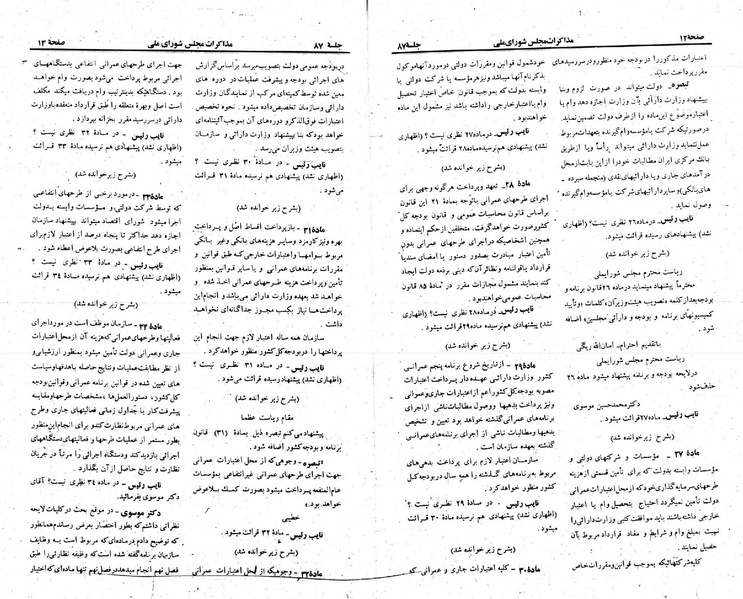 صفحه ۱۲
مذاکرات مجلس شورای ملی
جلسه ۸۷
اعتبارات مذکور را در بودجه خود منظور و در سررسیدهای
مقرر پرداخت نماید.
تبصره - دولت میتواند در صورت لزوم و بنا
به پیشنهاد وزارت دارائی به آن وزارت اجازه دهد وام یا
اعتبار موضوع این ماده را از طرف دولت تضمین نماید.
در صورتیکه شرکت یا مؤسسه وام گیرنده به تعهدات مربوط
عمل ننماید وزارت دارائی میتواند رأساً و یا از طریق
بانک مرکزی ایران مطالبات خود را از این بابت از محل
درآمدهای جاری و یا دارائیهای نقدی (منجمله سپرده
های بانکی) و سایر دارائیهای شرکت یا مؤسسه وام گیرنده
وصول نماید.
نایب رئیس - در ماده ۲۶ نظری نیست؟ (اظهاری
نشد) پیشنهادهای رسیده قرائت میشود.
(بشرح زیر خوانده شد)
ریاست محترم مجلس شورایملی
محترماً پیشنهاد مینماید در ماده ۲۶ قانون برنامه و
بودجه بعد از کلمه «تصویب هیئت وزیران» کلمات «و تأیید
کمیسیونهای برنامه و بودجه و دارائی مجلسین» اضافه
شود.
با تقدیم احترام. امان‌الله ریگی
ریاست محترم مجلس شورایملی
در لایحه بودجه و برنامه پیشنهاد میشود ماده ۲۶
حذف شود
دکتر محمدحسین موسوی
نایب رئیس - ماده ۲۷ قرائت میشود.
(بشرح زیر خوانده شد)
ماده ۲۷ - مؤسسات و شرکتهای دولتی و
مؤسسات وابسته بدولت که برای تأمین قسمتی از هزینه
طرحهای سرمایه گذاری خود که از محل اعتبارات عمرانی
دولت تأمین نمیگردد احتیاج بتحصیل وام یا اعتبار
خارجی داشته باشند باید موافقت کتبی وزارت دارائی را
نسبت بمبلغ وام و شرایط و مفاد قرارداد مربوط به آن
حصیل نمایند.
کلیه شرکتهائیکه بموجب قوانین و مقررات خاص
خود شمول قوانین و مقررات دولتی در مورد آنها موکول
بذکر نام آنها میباشد و نیز هر مؤسسه یا شرکت دولتی یا
وابسته بدولت که بموجب قانون خاص اختیار تحصیل
وام یا اعتبار خارجی را داشته باشد نیز مشمول این ماده
خواهند بود.
نایب رئیس - در ماده ۲۷ نظری نیست؟ (اظهاری
نشد) پیشنهادی هم نرسیده ماده ۲۸ قرائت میشود.
(بشرح زیر خوانده شد)
ماده ۲۸ - تعهد و پرداخت هرگونه وجهی برای
اجرای طرحهای عمرانی با توجه بماده ۲۱ این قانون
براساس قانون محاسبات عمومی و قانون بودجه کل
کشور صورت خواهد گرفت. متخلفین از حکم اینماده و
همچنین اشخاصیکه در اجرای طرحهای عمرانی بدون
تأمین اعتبار مبادرت بصدور دستور یا امضای سند یا
قرارداد یا قولنامه و نظائر آن که دینی برذمه دولت ایجاد
کند بنمایند مشمول مجازات مقرر در ماده ۸۵ قانون
محاسبات عمومی خواهند بود.
نایب رئیس - در ماده ۲۸ نظری نیست؟ (اظهاری
نشد) پیشنهادی هم نرسیده ماده ۲۹ قرائت میشود.
(بشرح زیر خوانده شد)
ماده ۲۹ - از تاریخ شروع برنامه پنجم عمرانی
کشور وزارت دارائی عهده‌دار پرداخت اعتبارات
مصوبه بودجه کل کشور اعم از اعتبارات جاری و عمرانی
و نیز پرداخت بدهیها و وصول مطالبات ناشی از اجرای
برنامه‌های عمرانی گذشته خواهد بود تعیین و تشخیص
بدهیها و مطالبات ناشی از اجرای برنامه‌های عمرانی
گذشته بعهده سازمان است.
سازمان اعتبار لازم برای پرداخت بدهی‌های
مربوط به برنامه‌های گذشته را همه ساله در بودجه کل
کشور منظور خواهد کرد.
نایب رئیس - در ماده ۲۹ نظری نیست؟
(اظهاری نشد) پیشنهادی هم نرسیده ماده ۳۰ قرائت
میشود.
(بشرح زیر خوانده شد)
ماده ۳۰ - کلیه اعتبارات جاری و عمرانی که
جلسه ۸۷
مذاکرات مجلس شورای ملی
صفحه ۱۳
در بودجه عمومی دولت بتصویب میرسد براساس گزارش
های اجرائی بودجه و پیشرفت عملیات در دوره های
معین شده توسط کمیته‌ای مرکب از نمایندگان وزارت
دارائی و سازمان تخصیص داده میشود. نحوه تخصیص
اعتبارات فوق‌الذکر و دوره‌های آن بموجب آئیننامه‌ای
خواهد بود که بنا به پیشنهاد وزارت دارائی و سازمان
بتصویب هیئت وزیران میرسد.
نایب رئیس - در ماده ۳۰ نظری نیست؟
(اظهاری نشد) پیشنهادی هم نرسیده ماده ۳۱ قرائت
می‌شود.
(بشرح زیر خوانده شد)
ماده ۳۱ - بازپرداخت اقساط اصل و پرداخت
بهره و نیز کارمزد و سایر هزینه‌های بانکی و غیر بانکی
مربوط به وامها و اعتبارات خارجی که طبق قوانین و
مقررات برنامه‌های عمرانی و یا سایر قوانین بمنظور
تأمین پرداخت هزینه طرحهای عمرانی اخذ شده و
خواهد شد بعهده وزارت دارائی میباشد و انجام این
پرداخت‌ها نیاز بکسب مجوز جداگانه‌ای نخواهد
داشت
سازمان همه ساله اعتبار لازم جهت انجام این
پرداختها را در بودجه کل کشور منظور خواهد کرد.
نایب رئیس - در ماده ۳۱ نظری نیست؟
(اظهاری نشد) پیشنهاد رسیده قرائت می‌شود.
(بشرح زیر خوانده شد)
مقام ریاست عظما
پیشنهاد می‌کنم تبصره ذیل بماده (۳۱) قانون
برنامه و بودجه کشور اضافه شود.
«تبصره - وجوهی که از محل اعتبارات عمرانی
جهت اجرای طرحهای عمرانی غیرانتفاعی بمؤسسات
عام‌المنفعه پرداخت میشود بصورت کمک بلاعوض
خواهد بود.»
خطیبی
نایب رئیس - ماده ۳۲ قرائت میشود.
(بشرح زیر خوانده شد)
ماده ۳۲ - وجوهیکه از محل اعتبارات عمرانی
جهت اجرای طرحهای عمرانی انتفاعی بدستگاههای
اجرائی مربوط پرداخت می‌شود بصورت وام خواهد
بود. دستگاهیکه بدینترتیب وام دریافت میکند مکلف
است اصل و بهره متعلقه را طبق قرارداد منعقده با وزارت
دارائی در سررسید مقرر بخزانه بپردازد.
نایب رئیس - در ماده ۳۲ نظری نیست؟
(اظهاری نشد) پیشنهادی هم نرسیده ماده ۳۳ قرائت
میشود.
(بشرح زیر خوانده شد)
ماده ۳۳ - در مورد برخی از طرحهای انتفاعی
که توسط شرکت دولتی و مؤسسات وابسته بدولت
اجرا میشود شورای اقتصاد میتواند به پیشنهاد سازمان
اجازه دهد حداکثر تا پنجاه درصد از اعتبار لازم برای
اجرای طرح انتفاعی بصورت بلاعوض اعطاء شود.
نایب رئیس - در ماده ۳۳ نظری نیست؟
(اظهاری نشد) پیشنهادی هم نرسیده ماده ۳۴ قرائت
میشود.
(بشرح زیر خوانده شد)
ماده ۳۴ - سازمان موظف است در مورد اجرای
فعالیتها و طرحهای عمرانی که هزینه آن از محل اعتبارات
جاری و عمرانی دولت تأمین میشود بمنظور ارزشیابی و
از نظر مطابقت عملیات و نتایج حاصله با هدفها و سیاست
های تعیین شده در قوانین برنامه عمرانی و قوانین بودجه
کل کشور، دستورالعمل‌ها، مشخصات طرحها و مقایسه
پیشرفت کار با جداول زمانی فعالیتهای جاری و طرح
های عمرانی مربوط نظارت کند و برای انجام این منظور
بطور مستمر از عملیات طرحها و فعالیتها و دستگاههای
اجرائی بازدید کند و دستگاه اجرائی را مرتباً در جریان
نظارت و نتایج حاصل از آن بگذارد.
نایب رئیس - در ماده ۳۴ نظری نیست؟ آقای
دکتر موسوی بفرمائید.
دکتر موسوی - در موقع بحث در کلیات لایحه
نظراتی داشتم که بطور اختصار بعرض رساندم همانطور
که توضیح دادم در ماده‌ای که مربوط است به وظایف
سازمان برنامه گفته شده که وظیفه نظارتی را طبق
فصل نهم انجام میدهد در فصل نهم تنها ماده‌ای که اختیار